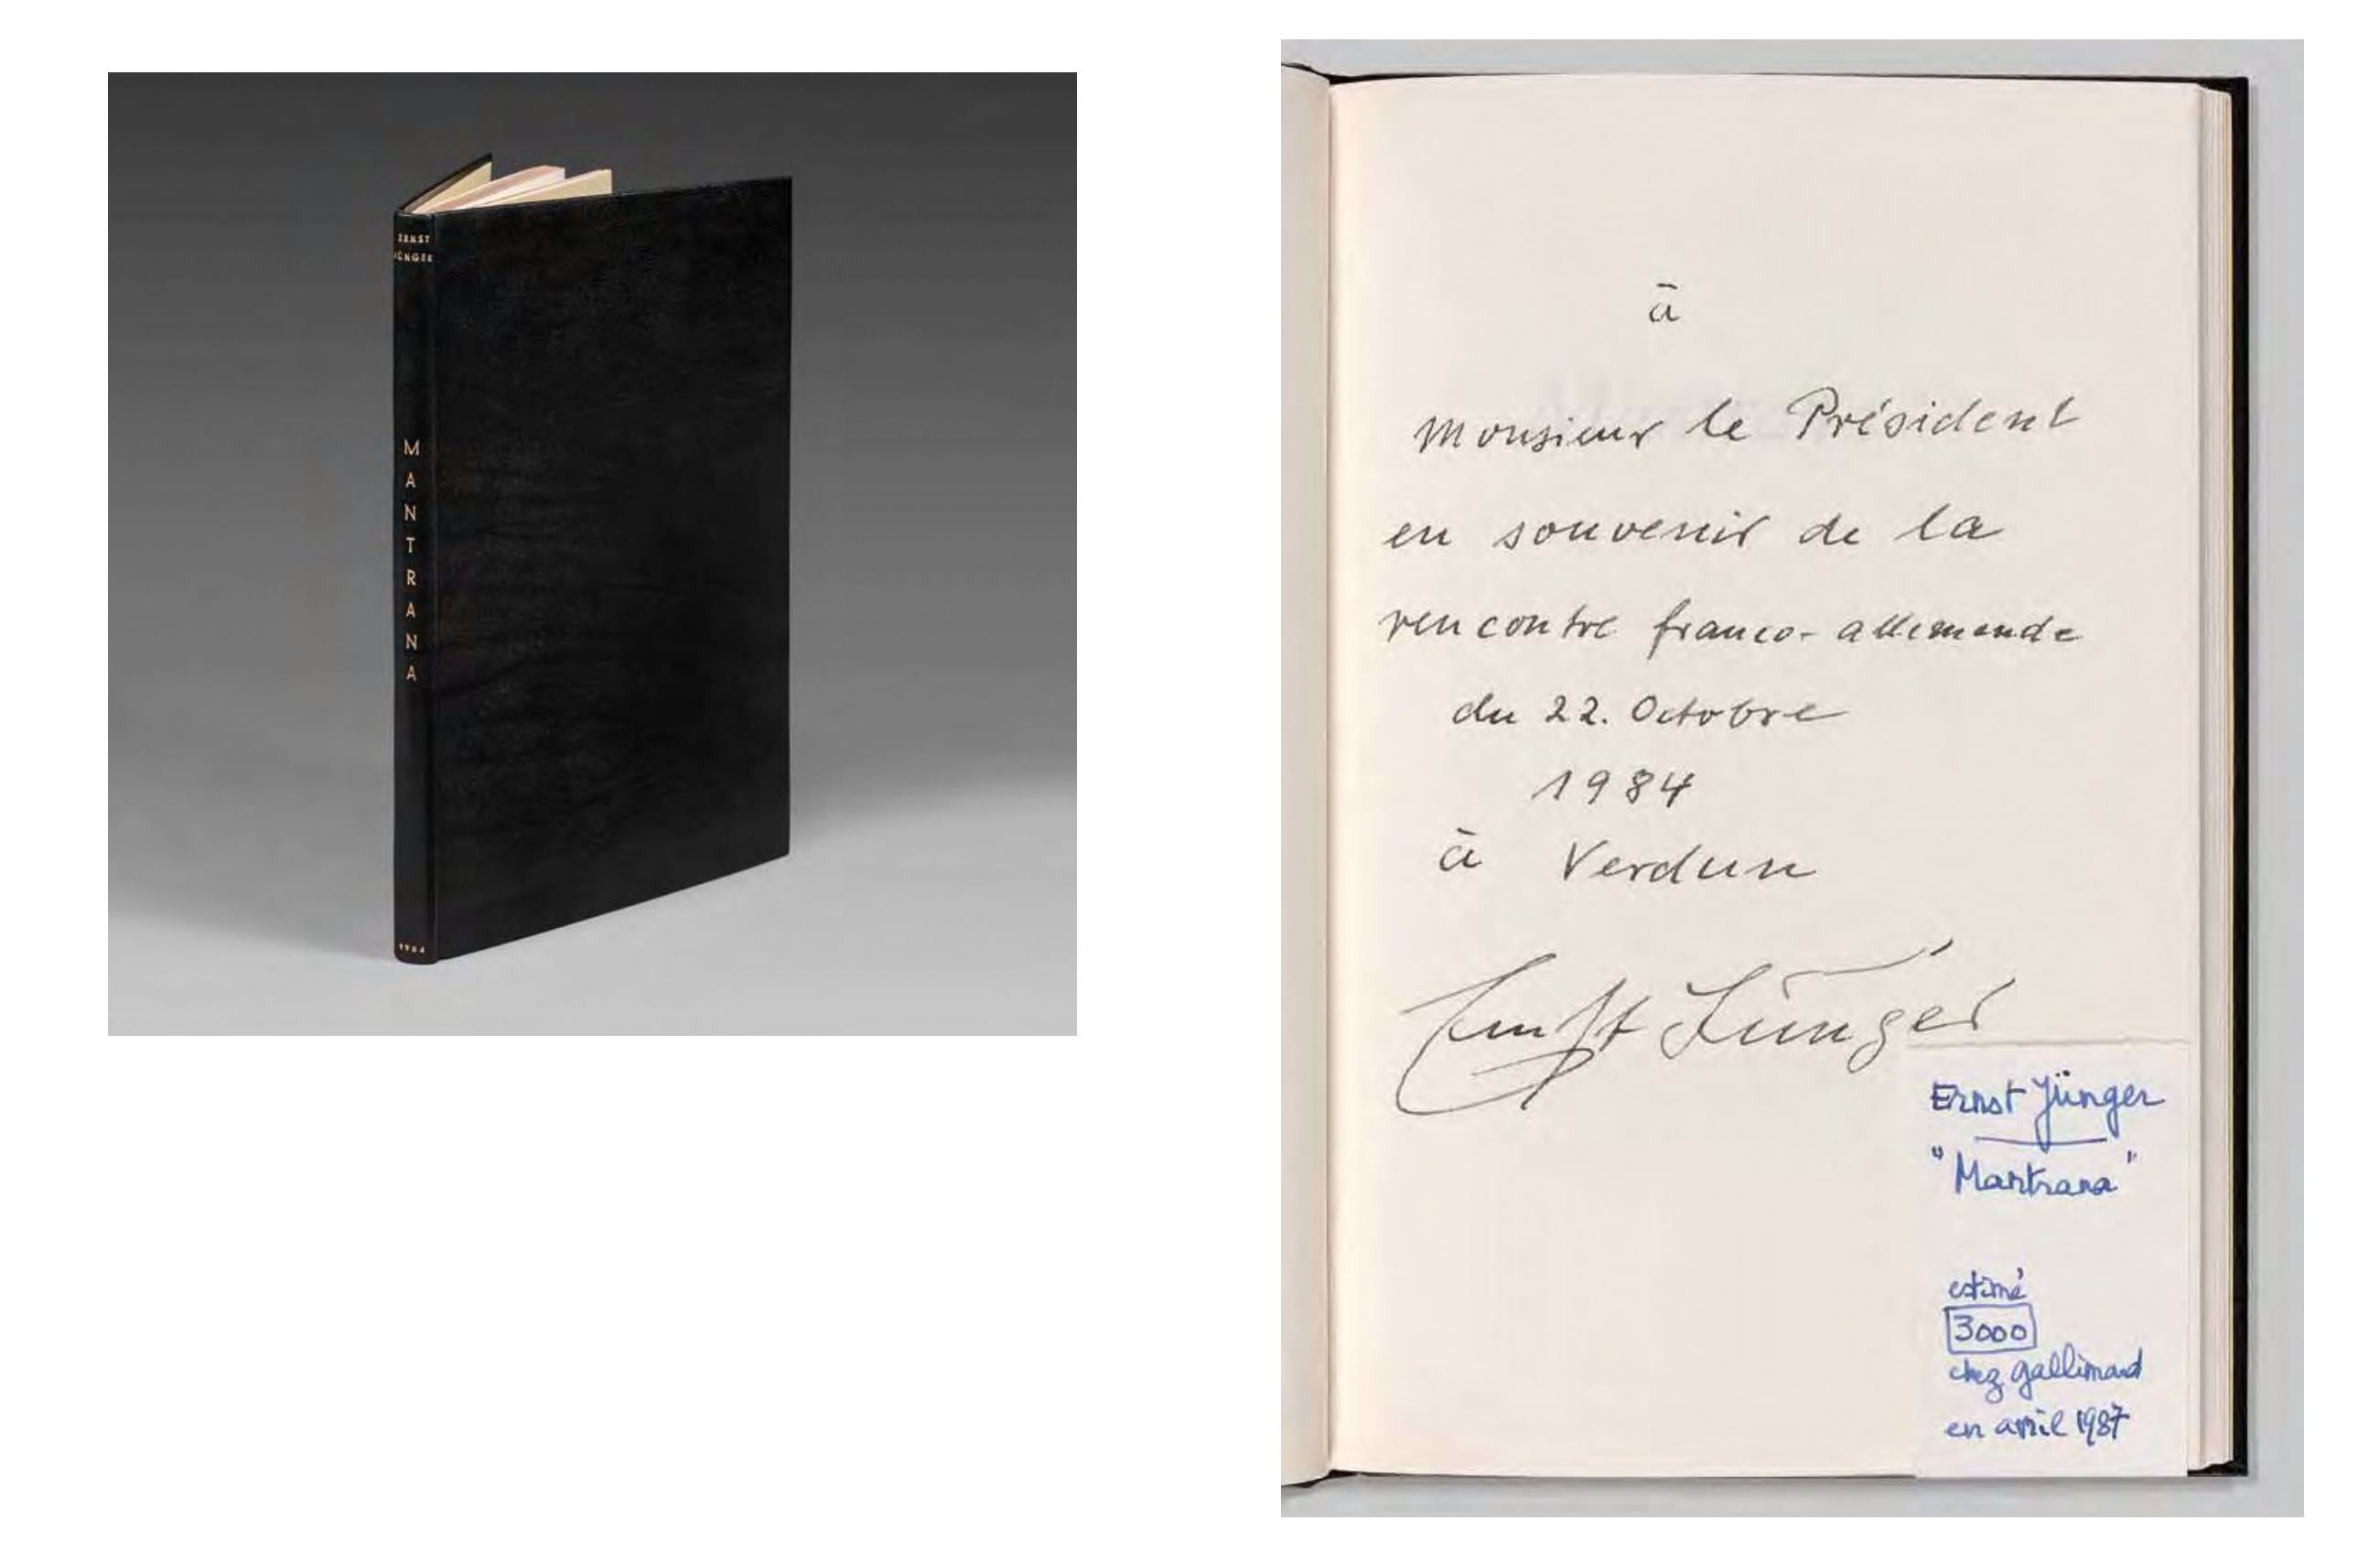 ERNST
JÜNGER
MANTRANA
1984
à
Monsieur le Président
en souvenir de la
rencontre franco-allemande
du 22. Octobre
1984
à Verdun
Ernst Jünger
Ernst Jünger
"Mantrana"
estimé
3000
chez gallimard
en avril 1987